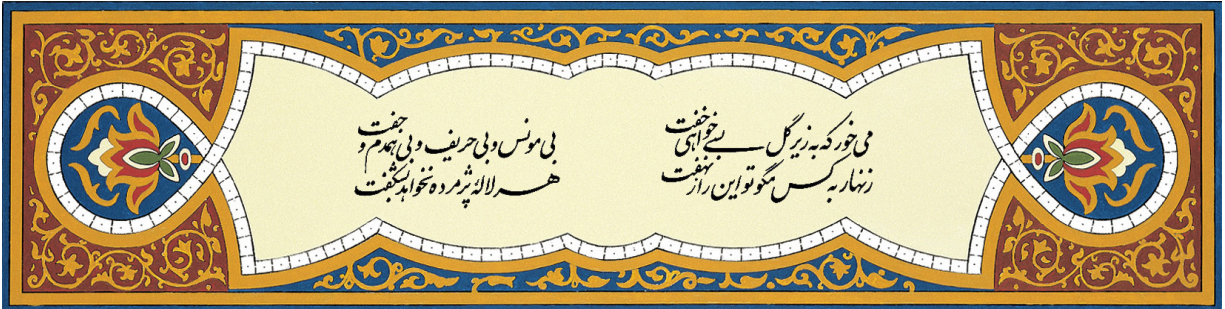 می خور که به زیر گل بسی خواهی خفت
بی مونس و بی حریف و بی همدم و جفت
زنهار به کس مگو تو این راز نهفت
هر لالهٔ پژمرده نخواهد بشکفت